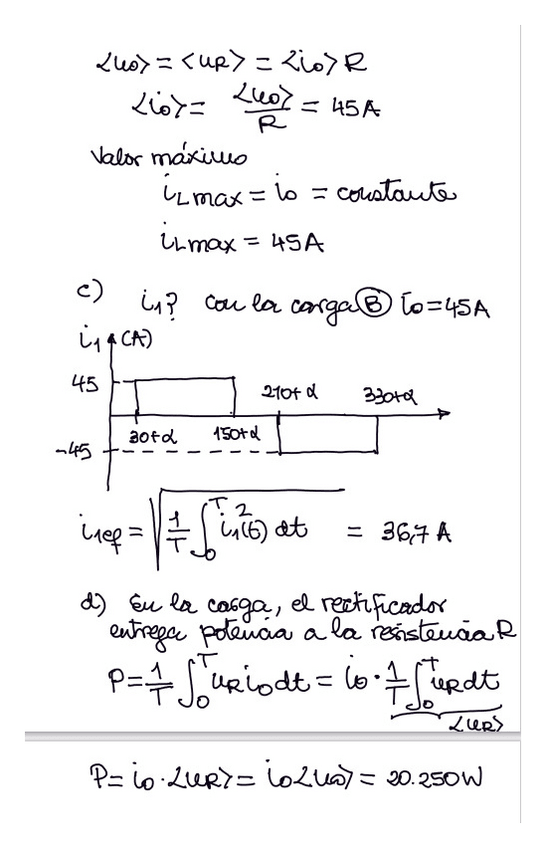 <u₀> = <u_R> = <i₀> R
<i₀> = <u₀>/R = 45 A
Valor máximo
i_L max = i₀ = constante
i_L max = 45 A
c) i₁? con la carga Ⓑ I₀ = 45 A
i₁ (A)
45
210+α 330+α
30+α 150+α
-45
i₁ef = √(1/T ∫₀ᵀ i₁²(t) dt) = 36,7 A
d) En la carga, el rectificador
entrega potencia a la resistencia R
P = 1/T ∫₀ᵀ u_R i₀ dt = i₀ · 1/T ∫₀ᵀ u_R dt
<u_R>
P = i₀ · <u_R> = i₀ <u₀> = 20.250 W